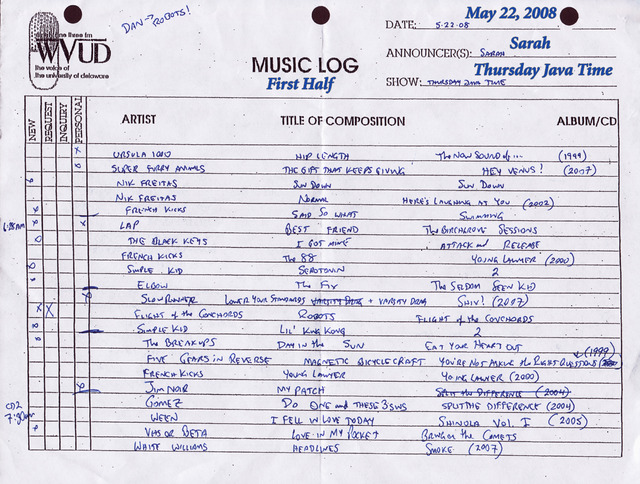 DAN → ROBOTS!
May 22, 2008
DATE: 5-22-08
WVUD
the voice of
the university of delaware
Sarah
ANNOUNCER(S): SARAH
MUSIC LOG
First Half
Thursday Java Time
SHOW: THURSDAY JAVA TIME
NEW REQUEST INQUIRY PERSONAL ARTIST TITLE OF COMPOSITION ALBUM/CD
URSULA 1000 HIP LENGTH The Now Sound of... (1999)
SUPER FURRY ANIMALS THE GIFT THAT KEEPS GIVING HEY VENUS! (2007)
NIK FREITAS SUN DOWN SUN DOWN
NIK FREITAS NORMAL HERE'S LAUGHING AT YOU (2002)
FRENCH KICKS SAID SO WHAT SWIMMING
LAP BEST FRIEND The BIRCHGROVE SESSIONS
THE BLACK KEYS I GOT MINE ATTACK and RELEASE
FRENCH KICKS The 88 YOUNG LAWYER (2000)
SIMPLE KID SEROTONIN 2
ELBOW The Fix The SELDOM SEEN KID
SLOWRUNNER LOWER YOUR STANDARDS + VARSITY DRAG SHIV! (2007)
FLIGHT of the CONCHORDS ROBOTS FLIGHT of the CONCHORDS
SIMPLE KID LIL' KING KONG 2
The BREAKUPS DAY in the SUN EAT YOUR HEART OUT
(1999)
FIVE GEARS in REVERSE MAGNETIC BICYCLECRAFT YOU'RE NOT ASKING the RIGHT QUESTIONS
FRENCH KICKS YOUNG LAWYER YOUNG LAWYER (2000)
JIM NOIR MY PATCH SPLIT the DIFFERENCE (2004)
CD2
7:30am
GOMEZ DO ONE and THESE 3 SWS SPLIT THE DIFFERENCE (2004)
WEEN I FELL IN LOVE TODAY SHINOLA VOL. I (2005)
VHS OR BETA LOVE IN MY POCKET BRING on the COMETS
WHITE WILLIAMS HEADLINES SMOKE (2007)